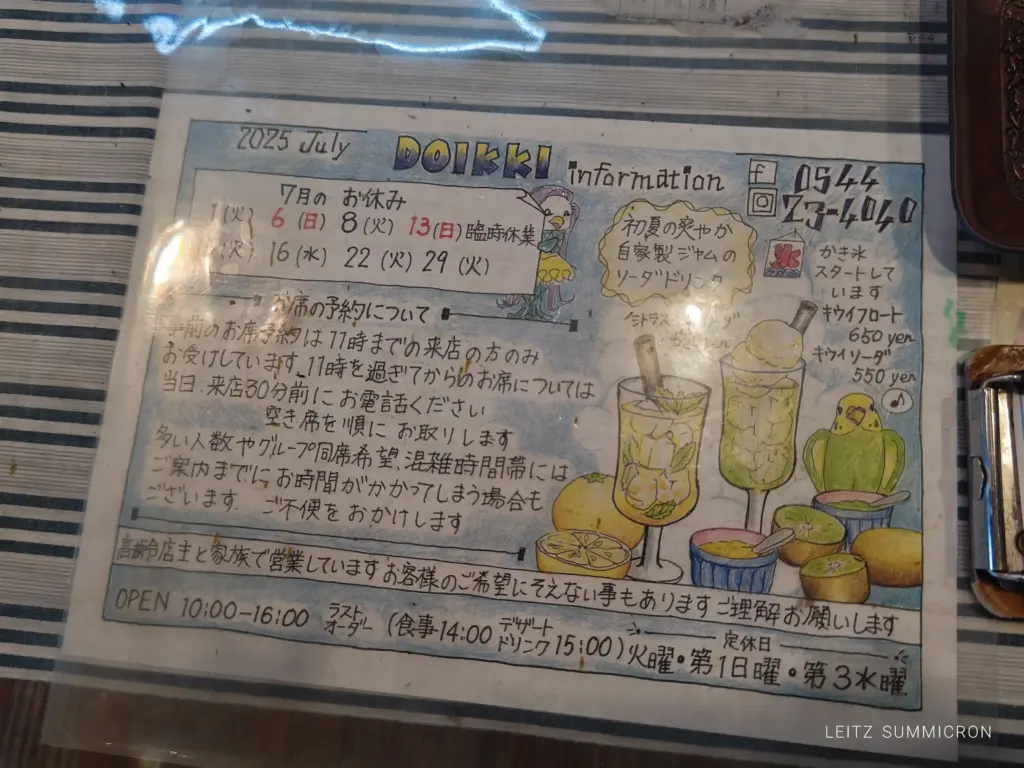 2025 July
DOIKKI information
0544
23-4040
7月の お休み
1(火) 6(日) 8(火) 13(日)臨時休業
(火) 16(水) 22(火) 29(火)
初夏の爽やか
自家製ジャムの
ソーダドリンク
かき氷
スタートして
います
キウイフロート
650 yen
キウイソーダ
550 yen
お席の予約について
事前のお席予約は11時までの来店の方のみ
お受けしています。11時を過ぎてからのお席については
当日.来店30分前にお電話ください
空き席を順に お取りします
多い人数やグループ同席希望、混雑時間帯には
ご案内までに、お時間がかかってしまう場合も
ございます. ご不便をおかけします
高齢店主と家族で営業しています お客様のご希望にそえない事もあります ご理解お願いします
OPEN 10:00-16:00 ラストオーダー (食事14:00 デザートドリンク15:00)
定休日
火曜・第1日曜・第3水曜
LEITZ SUMMICRON